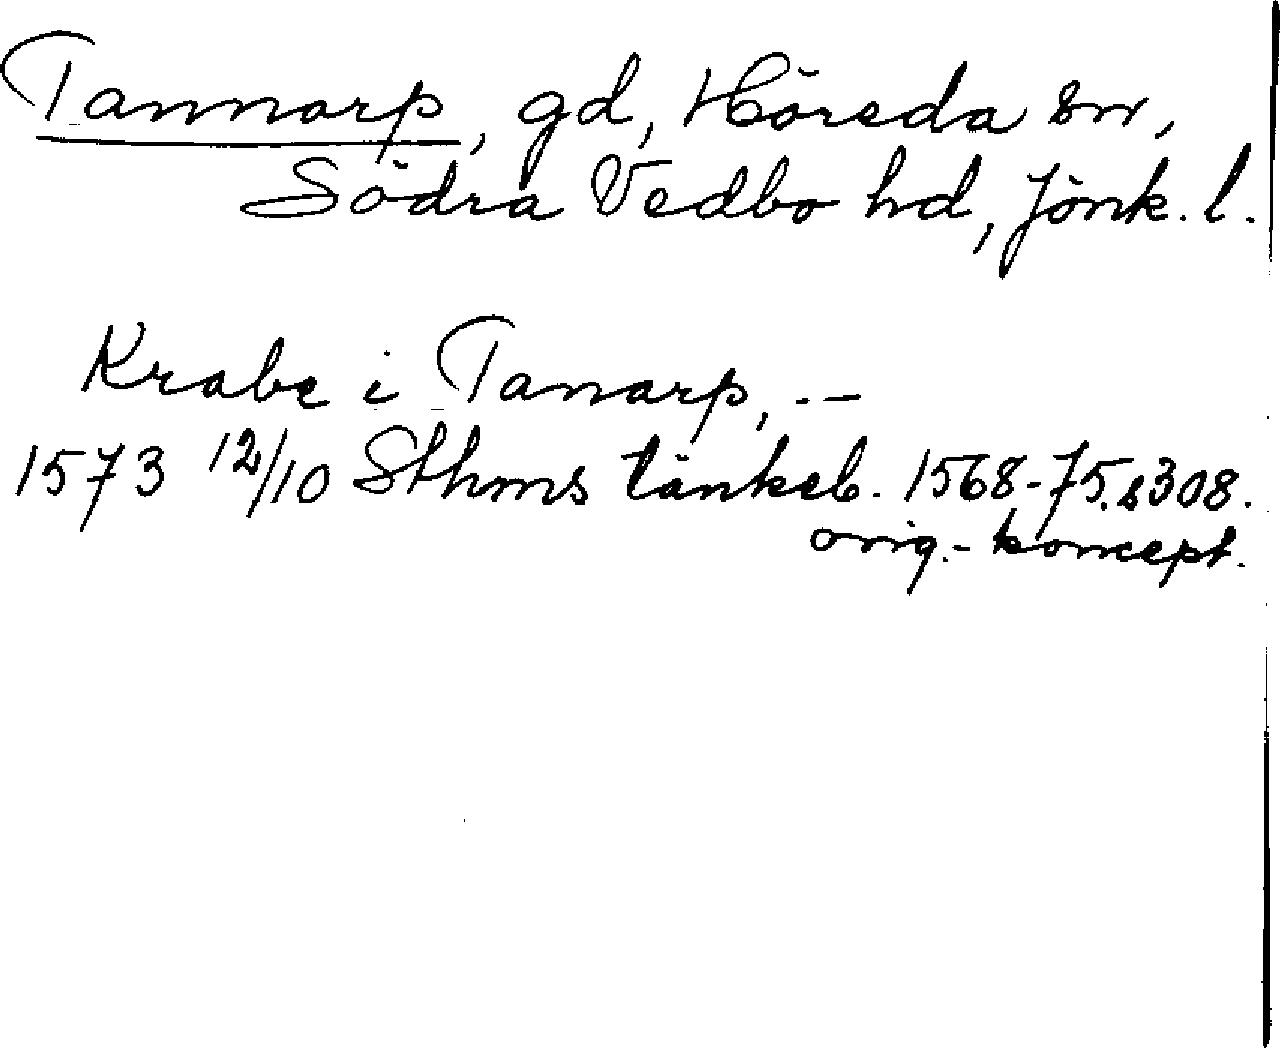 Tannarp, gd, Höreda sn,
Södra Vedbo hd, Jönk. l.
Krabe i Tanarp, --
1573 12/10 Sthms tänkeb. 1568-75. s 308.
orig.-koncept.